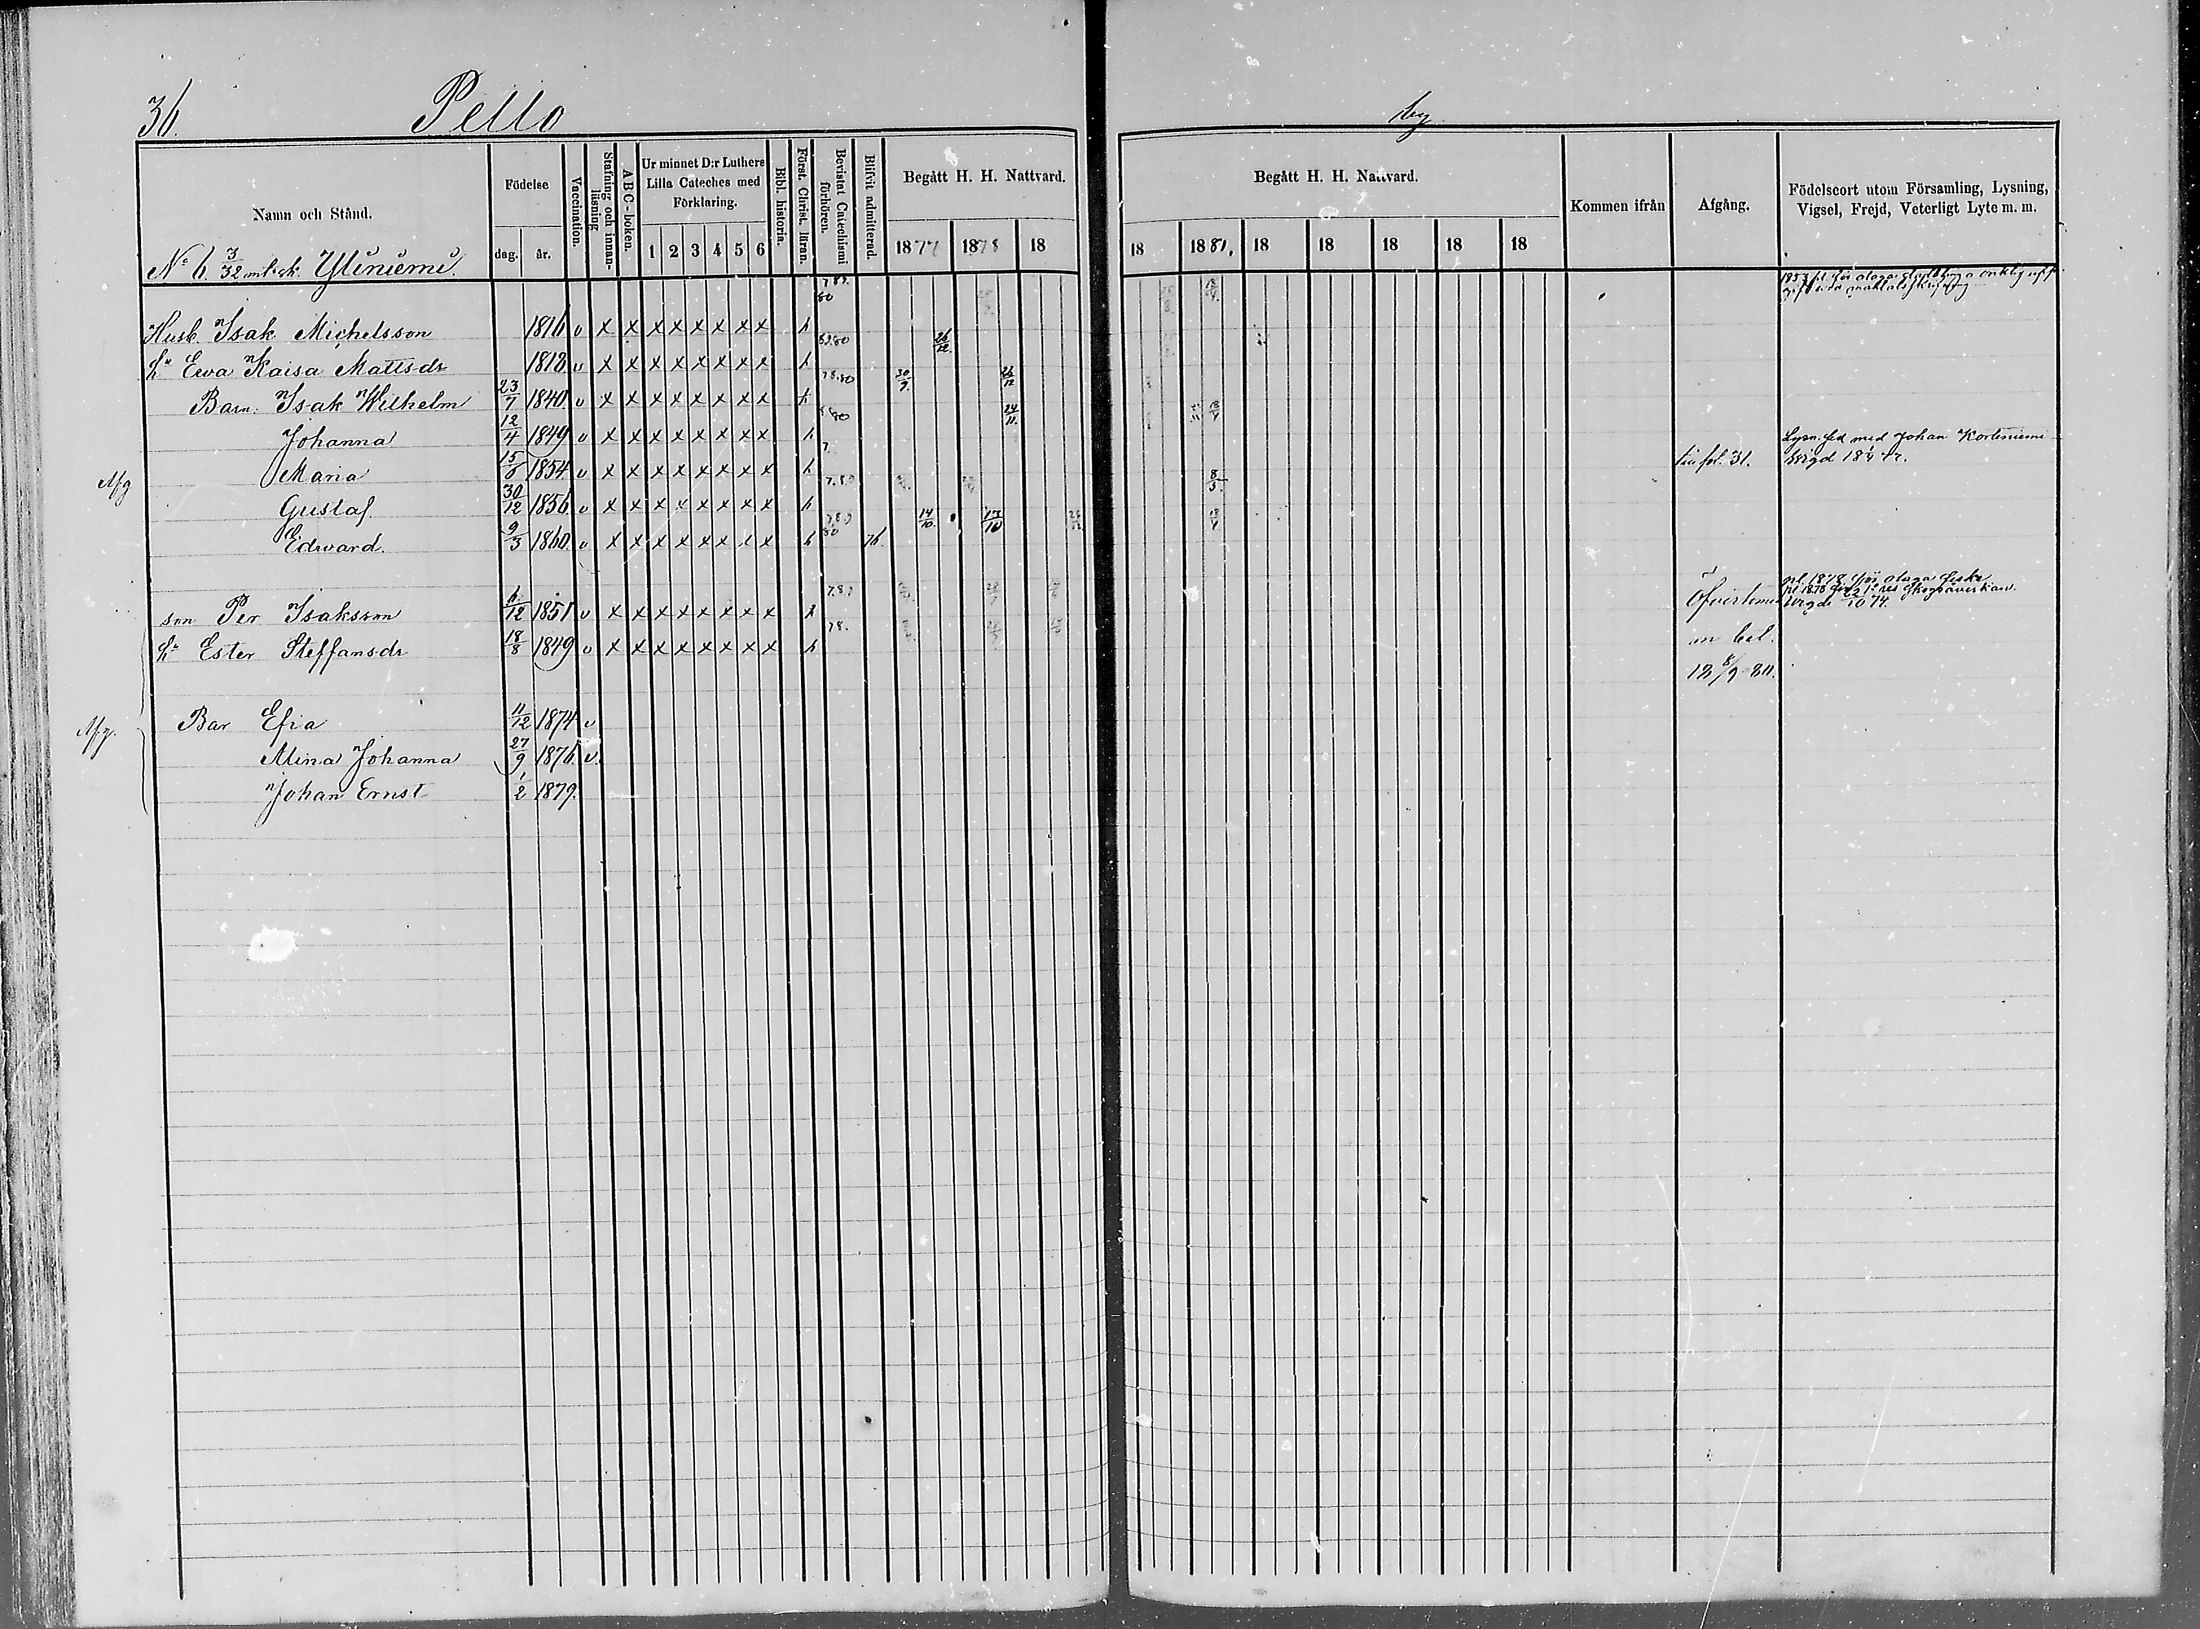 36.
Pello
by
Namn och Stånd.
Födelse
dag.
år.
Vaccination.
Stafning och innanläsning
ABC-boken.
Ur minnet D:r Luthers
Lilla Cateches med
Förklaring.
1 2 3 4 5 6
Bibl. historia.
Först. Christ. läran.
Bevistat Catechismi förhören.
Blifvit admitterad.
Begått H. H. Nattvard.
1877 1878 18
Begått H. H. Nattvard.
18 1881. 18 18 18 18 18
Kommen ifrån
Afgång.
Födelseort utom Församling, Lysning,
Vigsel, Frejd, Veterligt Lyte m. m.
No 6. 3/32 mtl sk. Yliniemi
Husb. Isak Michelsson 1816 v x x x x x x x x h 80
hu Ewa Kaisa Mattsdr 1818 v x x x x x x x x h 26/12
Barn: Isak Wilhelm 23/7 1840. v x x x x x x x x h 78.80 30/9. 26/12
Johanna 12/4 1849 v x x x x x x x x h 80 24/11.
Afg Maria 15/6 1854. v x x x x x x x x h 7. till fol. 31. Lysn. sed med Johan Kortiniemi
Gustaf 30/12 1856 v x x x x x x x x h 8/5.
Edward. 9/3 1860. v x x x x x x x x h 80 76. 14/10. 17/10
son Per Isaksson 6/12 1851 v x x x x x x x x h Öfvertorneå
hu Ester Steffansdr 18/8 1849 v x x x x x x x x h 78. m bet.
18 8/9 80.
Afg. Bar Efia 11/12 1874 v
Mina Johanna 27/9 1876. v.
Johan Ernst 1/2 1879.